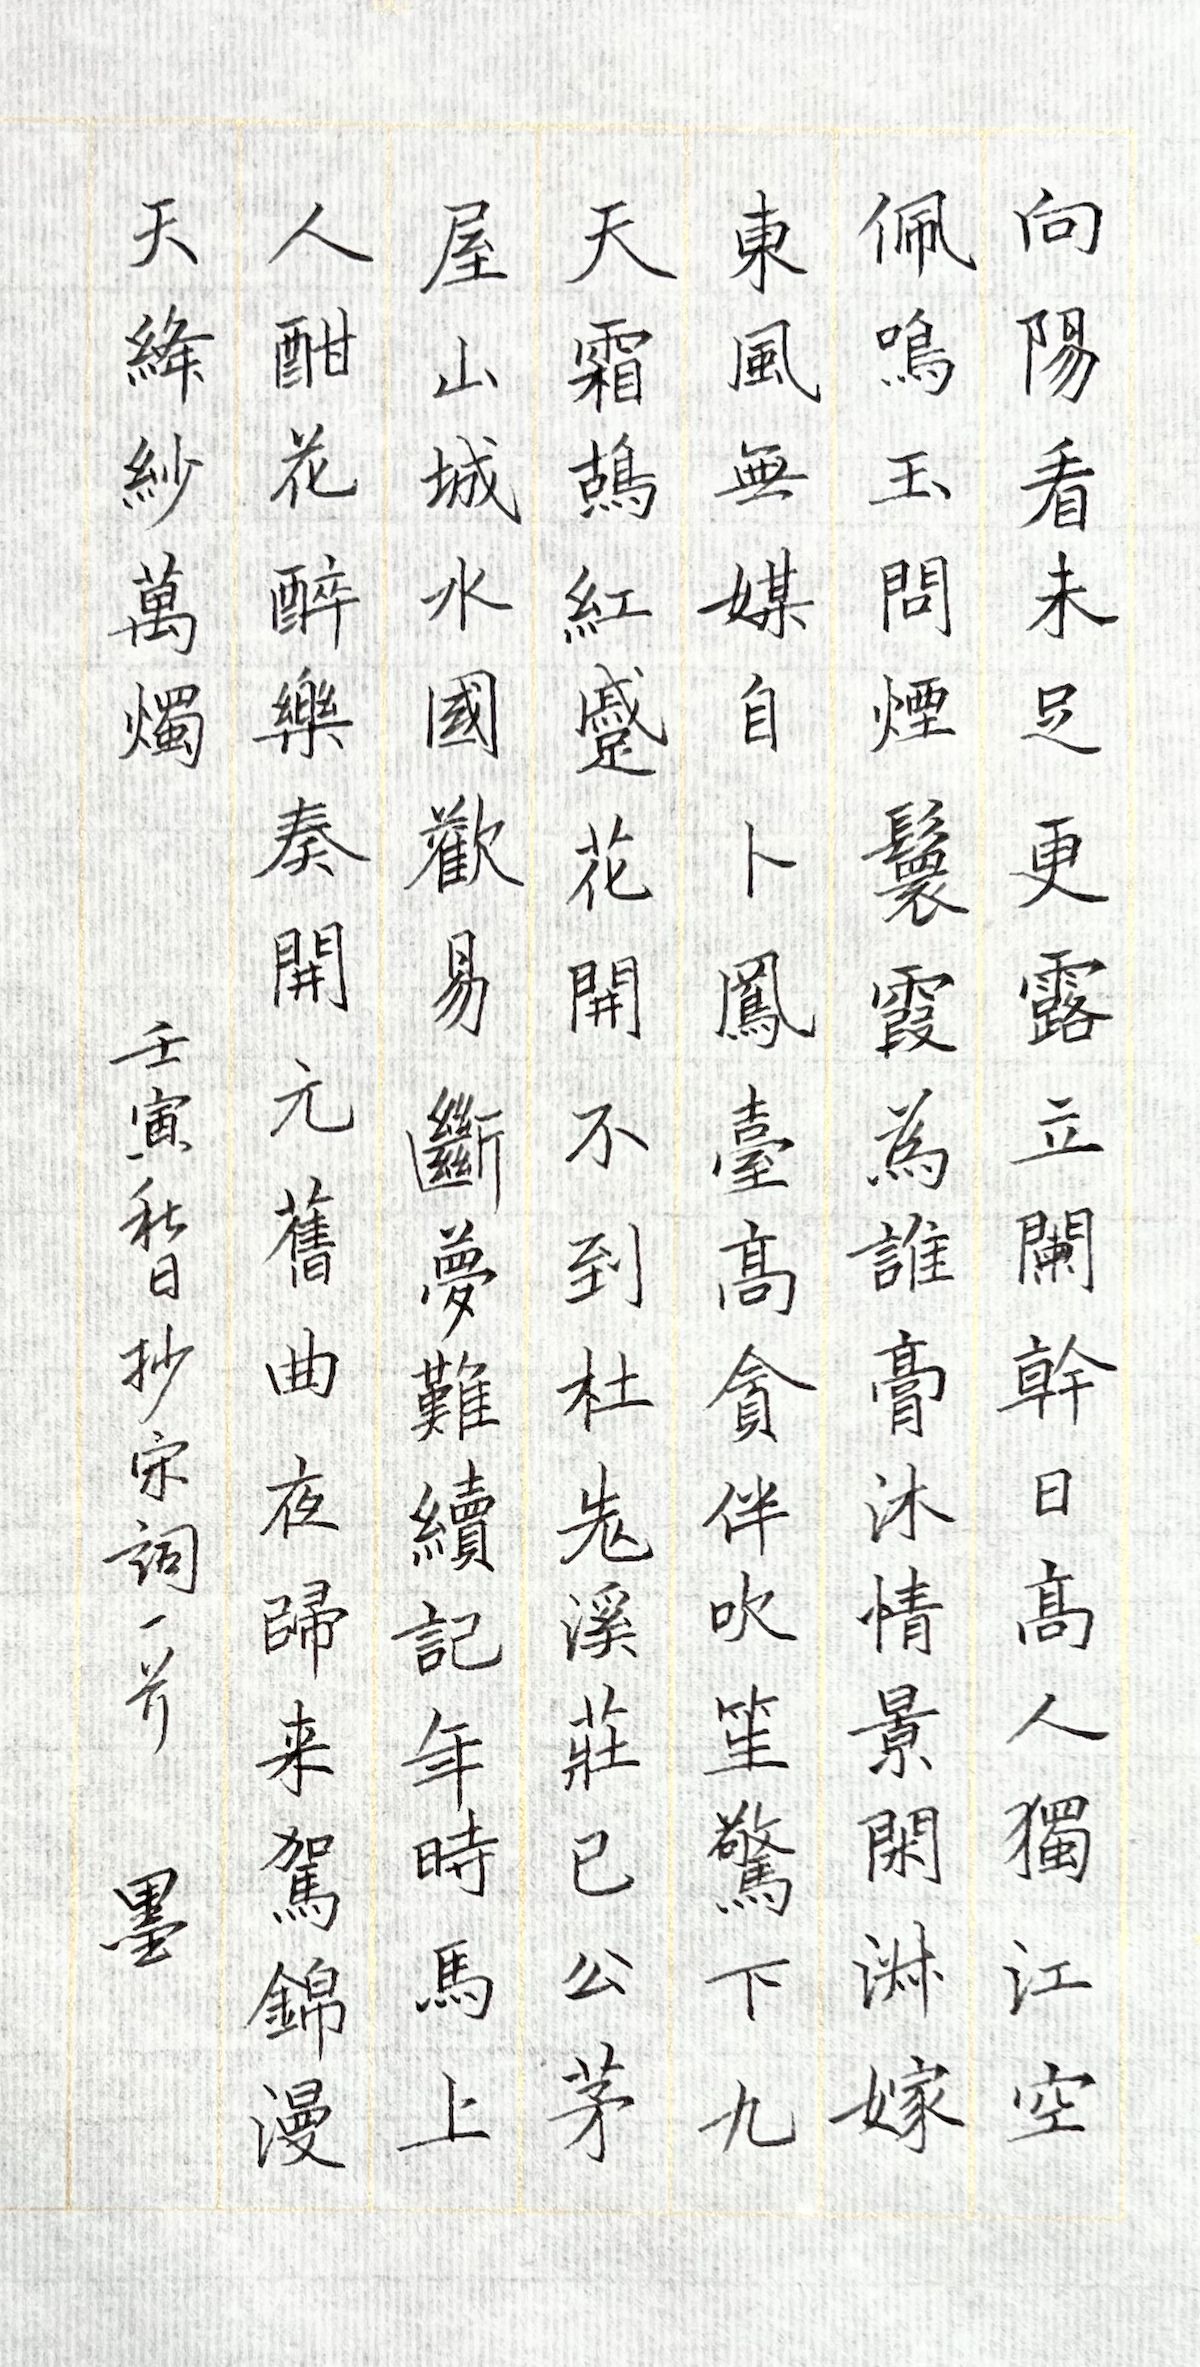 向陽看未足更露立闌幹日高人獨江空
佩鳴玉問煙鬟霞為誰膏沐情景閑淋嫁
東風無媒自卜鳳臺高貪伴吹笙驚下九
天霜鵠紅蹙花開不到杜老溪莊已公茅
屋山城水國歡易斷夢難續記年時馬上
人酣花醉樂奏開元舊曲夜歸来駕錦漫
天絳紗萬燭
壬寅秋日抄宋詞一首
墨